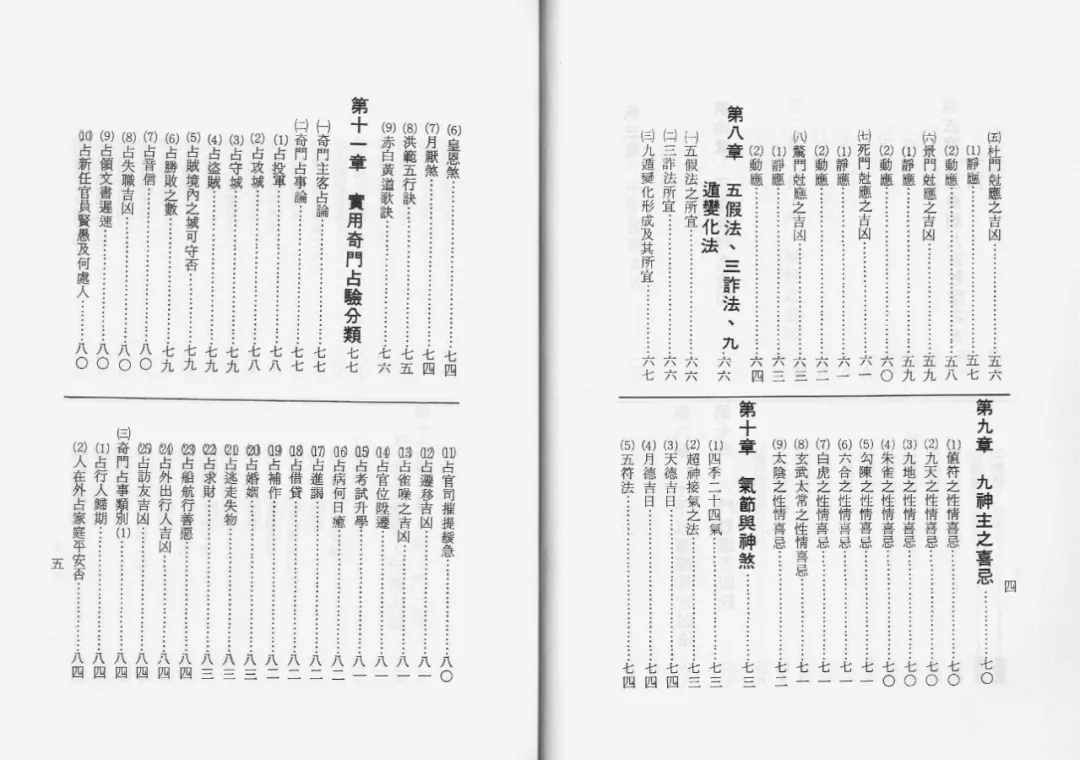 ㈤杜門尅應之吉凶……五六
⑴靜應……五七
⑵動應……五八
㈥景門尅應之吉凶……五九
⑴靜應……五九
⑵動應……六〇
㈦死門尅應之吉凶……六一
⑴靜應……六一
⑵動應……六二
㈧驚門尅應之吉凶……六三
⑴靜應……六三
⑵動應……六四
第八章 五假法、三詐法、九
遁變化法……六六
㈠五假法之所宜……六六
㈡三詐法所宜……六六
㈢九遁變化形成及其所宜……六七
第九章 九神主之喜忌……七〇
⑴值符之性情喜忌……七〇
⑵九天之性情喜忌……七〇
⑶九地之性情喜忌……七〇
⑷朱雀之性情喜忌……七〇
⑸勾陳之性情喜忌……七一
⑹六合之性情喜忌……七一
⑺白虎之性情喜忌……七一
⑻玄武太常之性情喜忌……七一
⑼太陰之性情喜忌……七二
第十章 氣節與神煞……七三
⑴四季二十四氣……七三
⑵超神接氣之法……七三
⑶天德吉日……七四
⑷月德吉日……七四
⑸五符法……七四
四
⑹皇恩煞……七四
⑺月厭煞……七四
⑻洪範五行訣……七五
⑼赤白黃道歌訣……七六
第十一章 實用奇門占驗分類……七七
㈠奇門主客占論……七七
㈡奇門占事論……七七
⑴占投軍……七八
⑵占攻城……七八
⑶占守城……七九
⑷占盜賊……七九
⑸占賊境內之城可守否……七九
⑹占勝敗之數……七九
⑺占音信……八〇
⑻占失職吉凶……八〇
⑼占領文書遲速……八〇
⑽占新任官員賢愚及何處人……八〇
⑾占官司摧提緩急……八〇
⑿占遷移吉凶……八一
⒀占雀噪之吉凶……八一
⒁占官位陞遷……八一
⒂占考試升學……八一
⒃占病何日癒……八二
⒄占進謁……八二
⒅占借貸……八二
⒆占補作……八二
⒇占婚姻……八三
(21)占逃走失物……八三
(22)占求財……八三
(23)占船航行善惡……八四
(24)占外出行人吉凶……八四
(25)占訪友吉凶……八四
㈢奇門占事類別⑴……八四
⑴占行人歸期……八四
⑵人在外占家庭平安否……八四
五